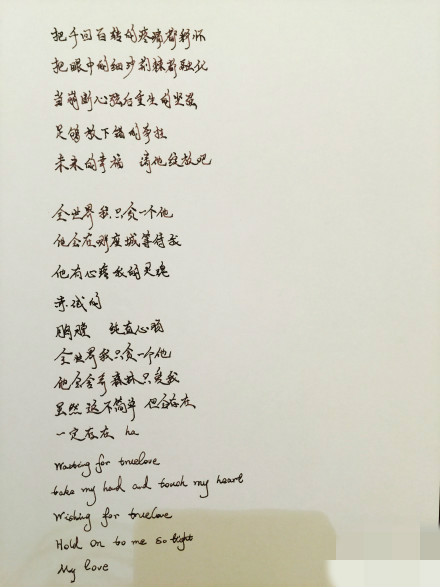 把千回百转的疼痛都释怀
把眼中的细沙荆棘都融化
当崩断心弦后重生的坚强
足够放下错的牵挂
未来的幸福 请他绽放吧
全世界我只贪一个他
他会在哪座城等待我
他有心疼我的灵魂
赤诚的
胸膛 纯真心
全世界我只贪一个他
他会舍弃森林只爱我
虽然这不简单 但会存在
一定存在 ha
Waiting for truelove
take my hand and touch my heart
Wishing for truelove
Hold on to me so tight
My love